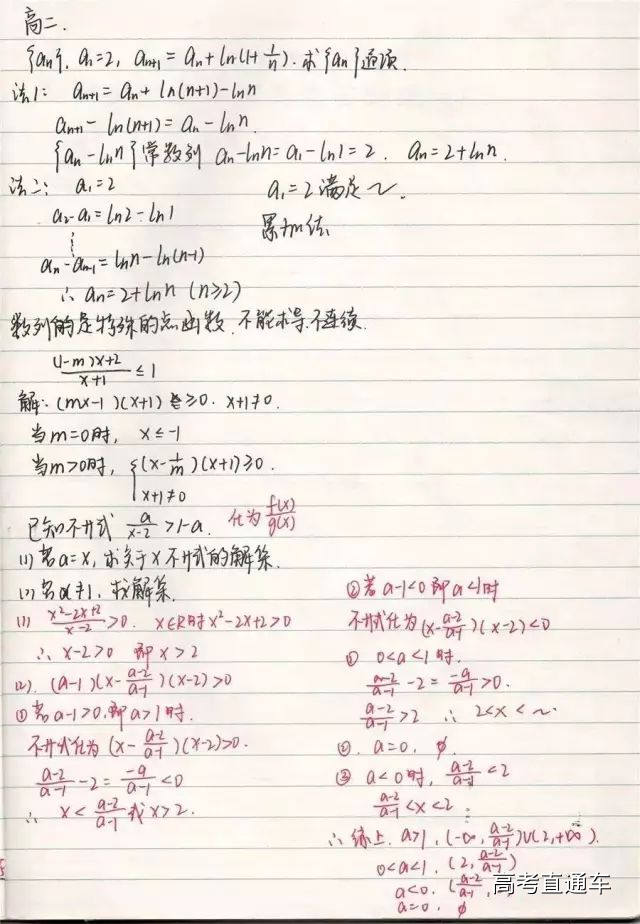 高二.
{an}, a₁=2, aₙ₊₁=aₙ+ln(1+1/n). 求{an}通项.
法1: aₙ₊₁=aₙ+ln(n+1)-lnn
aₙ₊₁-ln(n+1)=aₙ-lnn.
{aₙ-lnn}常数列 aₙ-lnn=a₁-ln1=2. aₙ=2+lnn.
法二: a₁=2
a₂-a₁=ln2-ln1
⋮
aₙ-aₙ₋₁=lnn-ln(n-1)
∴ aₙ=2+lnn (n≥2)
a₁=2满足~.
累加法
数列的是特殊的点函数.不能求导.不连续.
((1-m)x+2)/(x+1)≤1
解: (mx-1)(x+1)≥0. x+1≠0.
当m=0时, x≤-1
当m>0时, {(x-1/m)(x+1)≥0.
x+1≠0
已知不开式 a/(x-2)>1-a. 化为f(x)/g(x)
(1)若a=x,求关于x不开式的解集.
(2)若a≠1,求解集.
(1) (x²-2x+2)/(x-2)>0. x∈R时x²-2x+2>0
∴ x-2>0 即x>2
(2). (a-1)(x-(a-2)/(a-1))(x-2)>0
①若a-1>0.即a>1时.
不开式化为(x-(a-2)/(a-1))(x-2)>0.
(a-2)/(a-1)-2=(-a)/(a-1)<0
∴ x<(a-2)/(a-1)或x>2.
②若a-1<0即a<1时
不开式化为(x-(a-2)/(a-1))(x-2)<0
① 0<a<1时.
(a-2)/(a-1)-2=(-a)/(a-1)>0.
(a-2)/(a-1)>2 ∴ 2<x<~.
②. a=0, ∅.
③ a<0时, (a-2)/(a-1)<2
(a-2)/(a-1)<x<2.
∴综上. a>1, (-∞,(a-2)/(a-1))∪(2,+∞).
0<a<1, (2,(a-2)/(a-1))
a<0. ((a-2)/(a-1),
a=0, ∅
高考直通车